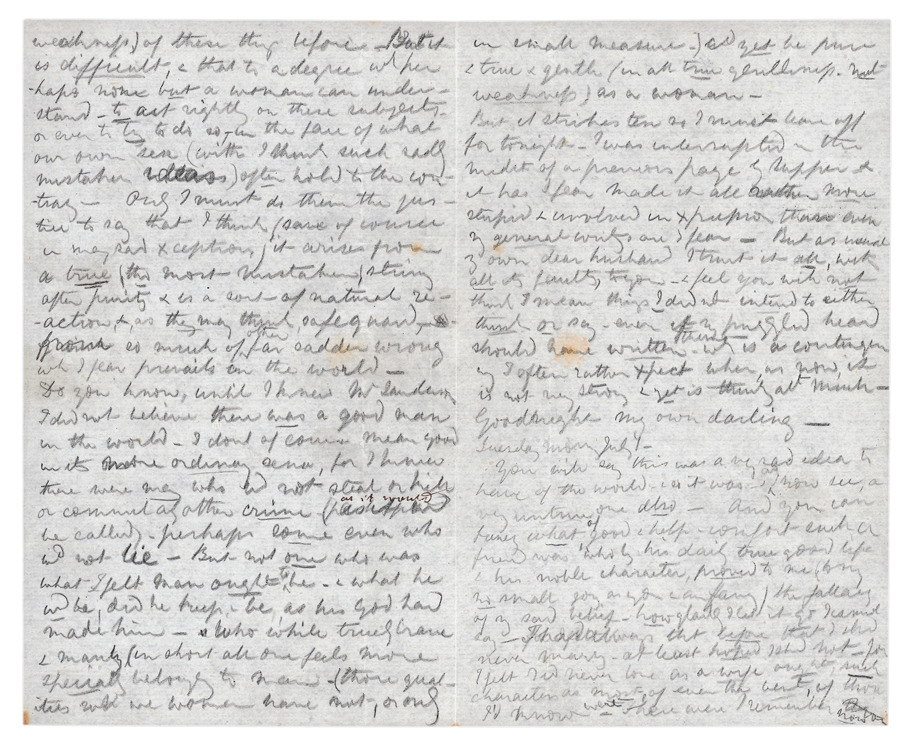 weakness) of these thgs before - But it
is difficult, & that to a degree wh per
-haps none but a woman can under-
stand - to act rightly on these subjects -
or even to try to do so - in the face of what
our own sex (with I think such sadly
mistaken ideas) often hold to the con-
trary - Only I must do them the jus-
tice to say that I think (save of course
in many sad xceptions) it arises from
a true (tho most mistaken) striving
after purity & is a sort of natural re-
-action &, as they may think, safeguard,
from so much of far sadder wrong
wh I fear prevails in the world -
Do you know, until I knew Mr Sanderson
I did not believe there was a good man
in the world - I dont of course mean good
in its more ordinary sense, for I knew
there were many who wd not steal or kill
as it would
or commit any other crime (
be called) - perhaps some even who
wd not lie - But not one who was
what I felt man ought to be - & what he
wd be, did he keep, & be, as his God had
made him - & who while truly brave
& manly (in short all one feels more
special belongs to man - (those qual-
ities wh we women have not, or only
in small measure -) cd yet be pure
& true & gentle (in all true gentleness - not
weakness) as a woman -
But it strikes ten so I must leave off
for tonight - I was interrupted in the
midst of a previous page by supper &
it has I fear made it all rather more
stupid & involved in xpression than even
my general writgs are I fear - But as usual
my own dear husband I trust it all, with
all its faults, to you - & feel you will not
think I mean things I did not intend to either
think or say - even if my puzzled head
should have written them - wh is a contingency
I often rather xpect when as now, it
is not very strong & yet is thinkg all much -
Goodnight my own darling -
Tuesday morng July 1 -
You will say this was a very sad idea to
have of the world - so it was - & as I now see, a
very untrue one also - And you can
fancy what good & help & comfort such a
friend was & wholly his daily true good life
& his noble character, proved to me (to my
no small joy as you can fancy) the fallacy
of my sad belief - how gladly I let it go I cannot
say - I had always thot before that I shd
never marry - at least hoped I shd not - for
I felt I cd never love as a wife ought such
character as most, of even the best, of those
I'd known were - There were I remember
now